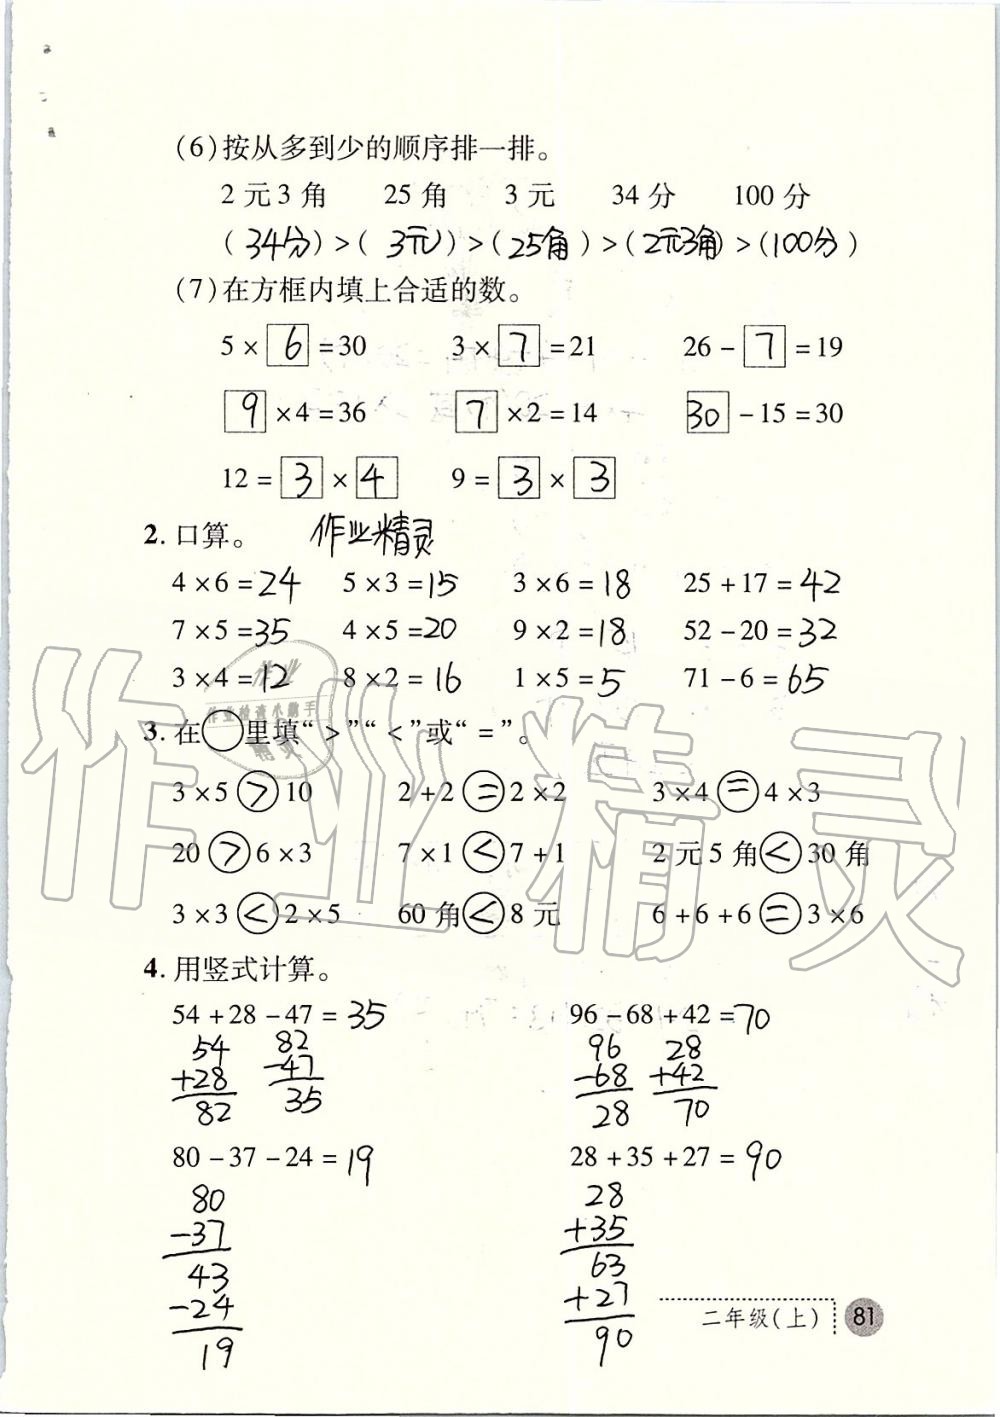 (6)按从多到少的顺序排一排。
2元3角 25角 3元 34分 100分
(34分)>(3元)>(25角)>(2元3角)>(100分)
(7)在方框内填上合适的数。
5×6=30 3×7=21 26-7=19
9×4=36 7×2=14 30-15=30
12=3×4 9=3×3
2.口算。 作业精灵
4×6=24 5×3=15 3×6=18 25+17=42
7×5=35 4×5=20 9×2=18 52-20=32
3×4=12 8×2=16 1×5=5 71-6=65
3.在○里填“>”“<”或“=”。
3×5>10 2+2=2×2 3×4=4×3
20>6×3 7×1<7+1 2元5角<30角
3×3<2×5 60角<8元 6+6+6=3×6
4.用竖式计算。
54+28-47=35 96-68+42=70
54 82 96 28
+28 -47 -68 +42
82 35 28 70
80-37-24=19 28+35+27=90
80 28
-37 +35
43 63
-24 +27
19 90
二年级(上) 81
作业精灵
作业
作业检查小助手
精灵